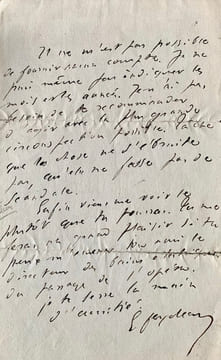 Il ne m'est pas possible
de fournir aucun compte. Je ne
puis même pas indiquer les
mois et les années. Je n'ai pas
besoin de te recommander
d'agir avec la plus grande
circonspection possible. Tâche
que la chose ne s'ébruite
pas, qu'elle ne fasse pas de
scandale.
Enfin viens me voir le
plus tôt que tu pourras. Tu me
feras grand plaisir si tu
peux m'amener
directeur des bains
du passage de l'opéra.
je te serre la main
d'amitié
E Feydeau